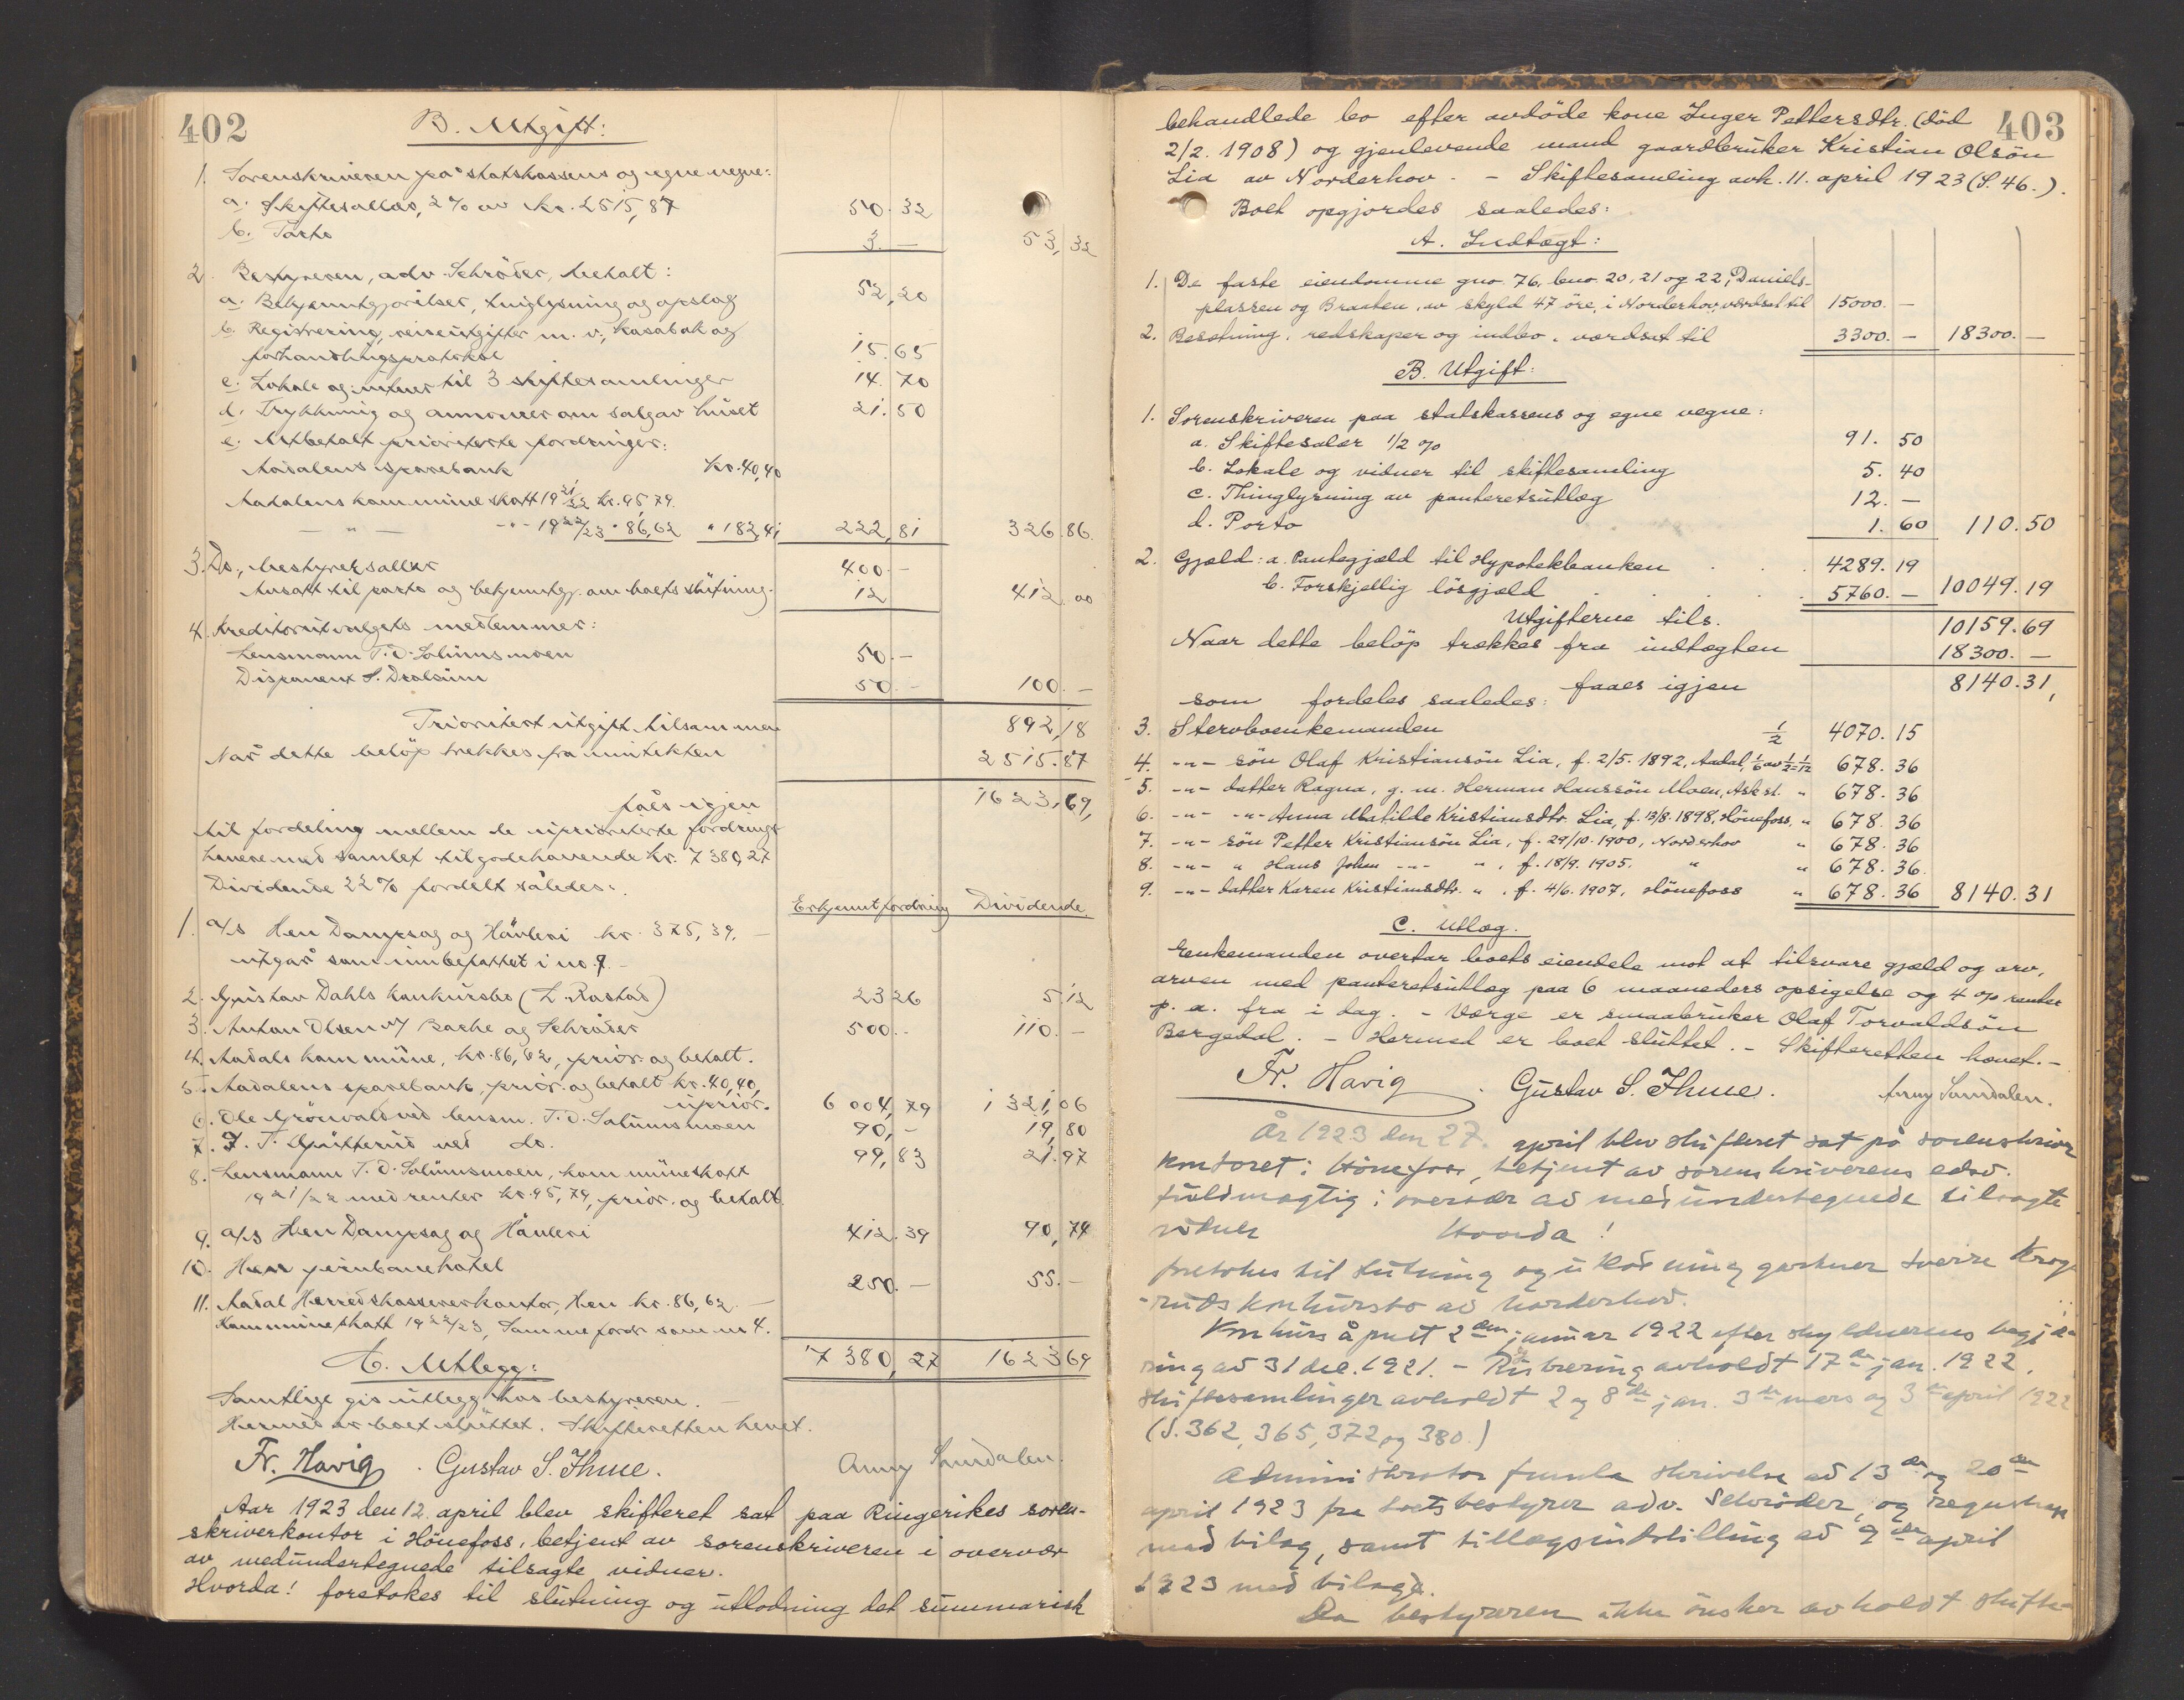 402
B. Utgift:
1. Sorenskriveren på statskassens og egne vegne:
a. Skiftesallær, 2% av kr. 2515,87 50.32
b. Porto 3.— 53,32
2. Bestyreren, adv. Schrøder, betalt:
a. Bekjenntgjørelser, tinglysning og opslag 52,20
b. Registrering, reiseutgifter m. v., kasabok og
forhandlingsprotokol 15.65
c. Lokale og vidner til 3 skiftesamlinger 14.70
d. Trykkning og annonser om salg av huset 21.50
e. Utbetalt prioriterte fordringer:
Aadalens sparebank kr. 40,40
Aadalens kommuneskatt 1921/22 kr. 95,79.
— " — -"- 1922/23 " 86,62 " 182,41 222,81 326.86.
3. Do., bestyrersallær 400.—
Ansatt til porto og bekjenntgj. om boets slutning. 12 412.00
4. Kreditorutvalgets medlemmer:
Lensmann T. O. Solumsmoen 50.—
Disponent S. Drolsum 50.— 100.—
Prioritert utgift tilsammen 892,18
Når dette beløp trekkes fra inntekten 2515.87
fåes igjen 1623,69,
til fordeling mellem de uprioriterte fordrings-
havere med samlet tilgodehavende kr. 7380,27
Dividende 22% fordelt således:
Erkjennt fordring Dividende
1. A/s Hen Dampsag og Høvleri kr. 375,39.—
utgår som innbefattet i no. 9.—
2. Gustav Dahls konkursbo (L. Rastad) 23 26 5.12
3. Anton Olsen v/ Bache og Schrøder 500.— 110.—
4. Aadals kommune, kr. 86,62, prior. og betalt.
5. Aadalens sparebank, prior. og betalt kr. 40,40,
uprior. 6 004,79 1 321,06
6. Ole Grönvold ved lensm. T. O. Solumsmoen 90,— 19,80
7. J. T. Guttterud ved do. 99,83 21.97
8. Lensmann T. O. Solumsmoen, kommuneskatt
1921/22 med renter kr. 95,79, prior. og betalt
9. A/s Hen Dampsag og Høvleri 412.39 90,74
10. Hen jernbanehotel 250.— 55.—
11. Aadal Herredskassererkontor, Hen kr. 86,62.—
Kommuneskatt 1922/23, Samme fordr. som no 4.
7380,27 1623 69
C. Utlegg:
Samtlige gis utlegg hos bestyreren.—
Hermed er boet sluttet. Skifteretten hevet.
Fr. Havig. Gustav S. Thue. Anny Sundalen.
Aar 1923 den 12. april blev skifteret sat paa Ringerikes soren-
skriverkontor i Hönefoss, betjent av sorenskriveren i overvær
av medundertegnede tilsagte vidner.
Hvorda! foretokes til slutning og utlodning det summarisk
403
behandlede bo efter avdöde kone Inger Pettersdtr. (död
2/2. 1908) og gjenlevende mand gaardbruker Kristian Olsön
Lia av Norderhov. — Skiftesamling avh. 11. april 1923 (S. 46.).
Boet opgjordes saaledes:
A. Indtægt:
1. De faste eiendomme gno. 76, bno. 20, 21 og 22, Daniels-
plassen og Braaten, av skyld 47 öre, i Norderhov, værdsat til 15000.—
2. Besætning, redskaper og indbo, værdsat til 3300.— 18300.—
B. Utgift:
1. Sorenskriveren paa statskassens og egne vegne:
a. Skiftesalær 1/2 % 91.50
b. Lokale og vidner til skiftesamling 5.40
c. Thinglysning av panteretsutlæg 12.—
d. Porto 1.60 110.50
2. Gjæld: a. Pantegjæld til Hypotekbanken 4289.19
b. Forskjellig lösgjæld 5760.— 10049.19
Utgifterne tils. 10159.69
Naar dette belöp trækkes fra indtægten 18300.—
faaes igjen 8140.31,
som fordeles saaledes:
3. Stervboenkemanden 1/2 4070.15
4. -"- sön Olaf Kristiansön Lia, f. 2/5. 1892, Aadal, 1/6 av 1/2 = 1/12 678.36
5. -"- datter Ragna, g. m. Herman Hanssön Moen, Ask st. " 678.36
6. -"- -"- Anna Matilde Kristiansdtr. Lia, f. 13/8. 1898, Hönefoss. " 678.36
7. -"- sön Petter Kristiansön Lia, f. 29/10. 1900, Norderhov " 678.36
8. -"- " Hans John -"- ", f. 18/9. 1905. " " 678.36.
9. -"- datter Karen Kristiansdtr. ", f. 4/6. 1907, Hönefoss " 678.36 8140.31
C. Utlæg.
Enkemanden overtar boets eiendele mot at tilsvare gjæld og arv,
arven med panteretsutlæg paa 6 maaneders opsigelse og 4 % renter
p. a. fra i dag. — Værge er smaabruker Olaf Torvaldsön
Bergedal. — Hermed er boet sluttet. — Skifteretten hævet.—
Fr. Havig. Gustav S. Thue. Anny Sundalen.
År 1923 den 27. april blev skifteret sat på sorenskriver
kontoret i Hönefoss, betjent av sorenskriverens edsv.
fuldmægtig i overvær av medundertegnede tilsagte
vidner Hvorda!
foretokes til slutning og utlodning gartner Sverre Krog-
ruds konkursbo av Norderhov.
Konkurs åpnet 2den januar 1922 efter skyldnerens begjæ-
ring av 31 des. 1921. — Registrering avholdt 17de jan. 1922.
Skiftesamlinger avholdt 2 og 8de jan. 3de mars og 3de april 1922
(S. 362, 365, 372 og 380.)
Administrator fremla skrivelse av 13de og 20de
april 1923 fra boets bestyrer adv. Schrøder, og regnskap
med bilag, samt tillægsindstilling av 9de april
1923 med bilag.
Da bestyreren ikke önsker avholdt skifte-